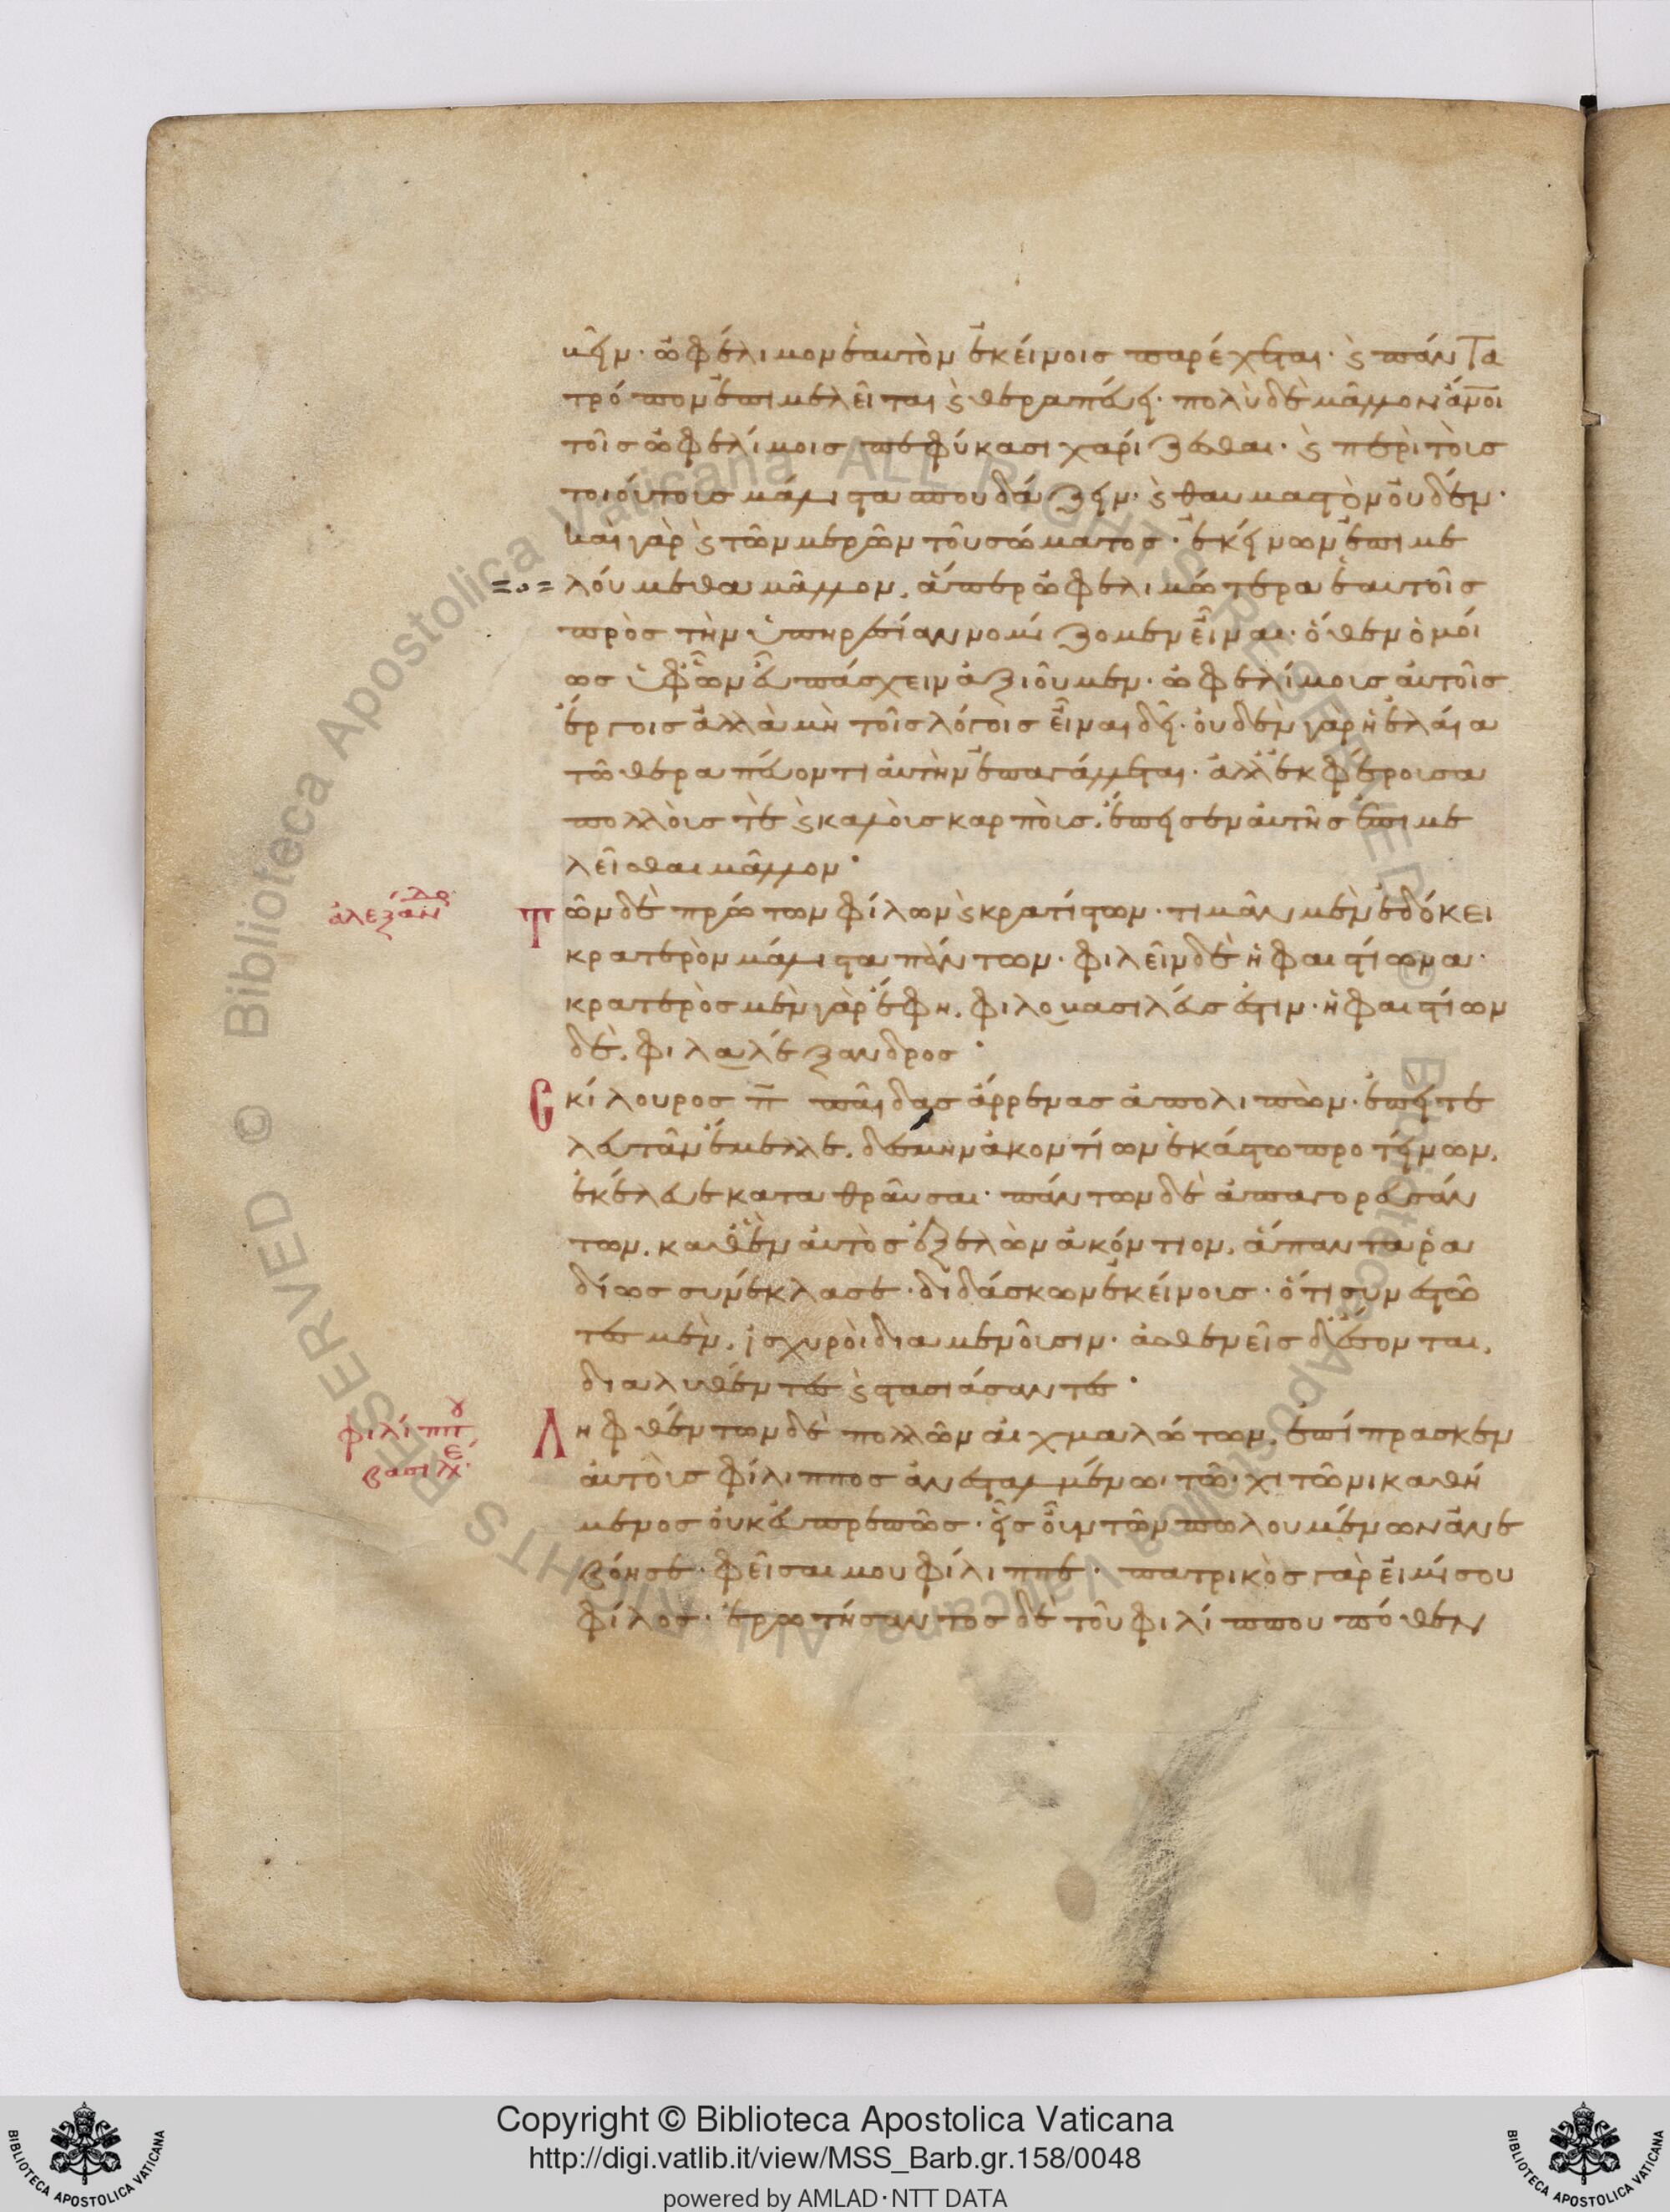 κεῖν· ὠφέλιμον ἑαυτὸν ἐκείνοις παρέχεται· ϛ πάντα
τρόπον ἐπιμελεῖται ϛ θεραπεύει· πολὺ δὲ μᾶλλον ἄνοι
τοῖς ὠφελίμοις πεφύκασι χαρίζεσθαι· ϛ περὶ τοὺς
τοιούτους μάλιστα σπουδάζειν· ϛ θαυμαστὸν οὐδέν·
καὶ γὰρ ϛ τῶν μερῶν τοῦ σώματος· ἐκείνων ἐπιμε
λούμεθα μᾶλλον, ἅπερ ὠφελιμώτερα ἑαυτοῖς
πρὸς τὴν ὑπηρεσίαν νομίζομεν εἶναι· ὅθεν ὁμοί
ως ὑφ᾽ ὧν εὖ πάσχειν ἀξιοῦμεν· ὠφελίμους αὐτοῖς
ἔργοις ἀλλὰ μὴ τοῖς λόγοις εἶναι δεῖ· οὐδὲν γὰρ ἡ ἐλαία
τῶ θεραπεύοντι αὐτὴν ἐπαγγέλλεται· ἀλλ᾽ ἐκφέρουσα
πολλούς τε ϛ καλοὺς καρποὺς, ἔπεισεν αὐτῆς ἐπιμε
λεῖσθαι μᾶλλον·
ἀλεξάνδρο
Τῶν δὲ πρώτων φίλων ϛ κρατίστων· τιμᾶν μὲν ἐδόκει
κρατερὸν μάλιστα πάντων· φιλεῖν δὲ ἡφαιστίωνα·
κρατερὸς μὲν γὰρ ἔφη, φιλοβασιλεύς ἐστιν· ἡφαιστίων
δὲ, φιλαλέξανδρος·
Σκίλουρος π̄ παῖδας ἄρρενας ἀπολιπὼν· ἐπεὶ τε
λευτᾶν ἔμελλε, δέσμην ἀκοντίων ἑκάστω προτείνων,
ἐκέλευε καταθραῦσαι· πάντων δὲ ἀπαγορευσάν
των, καθ᾽ ἓν αὐτὸς ἐξελὼν ἀκόντιον, ἅπαντα ῥα
δίως συνέκλασε· διδάσκων ἐκείνους· ὅτι συνεστῶ
τες μὲν, ἰσχυροὶ διαμενοῦσιν· ἀσθενεῖς δ᾽ ἔσονται,
διαλυθέντες ϛ στασιάσαντες·
φιλίππου
βασιλέ
Ληφθέντων δὲ πολλῶν αἰχμαλώτων, ἐπίπρασκεν
αὐτοὺς φίλιππος ἀνεσταλμένω· τῶ· χιτῶνι καθή
μενος οὐκ εὐπρεπῶς· εἷς οὖν τῶν πωλουμένων ἀνε
βόησε· φεῖσαι μου φίλιππε· πατρικὸς γὰρ εἰμί σου
φίλος· ἐρωτήσαντος δὲ τοῦ φιλίππου πόθεν
Copyright © Biblioteca Apostolica Vaticana
http://digi.vatlib.it/view/MSS_Barb.gr.158/0048
powered by AMLAD·NTT DATA